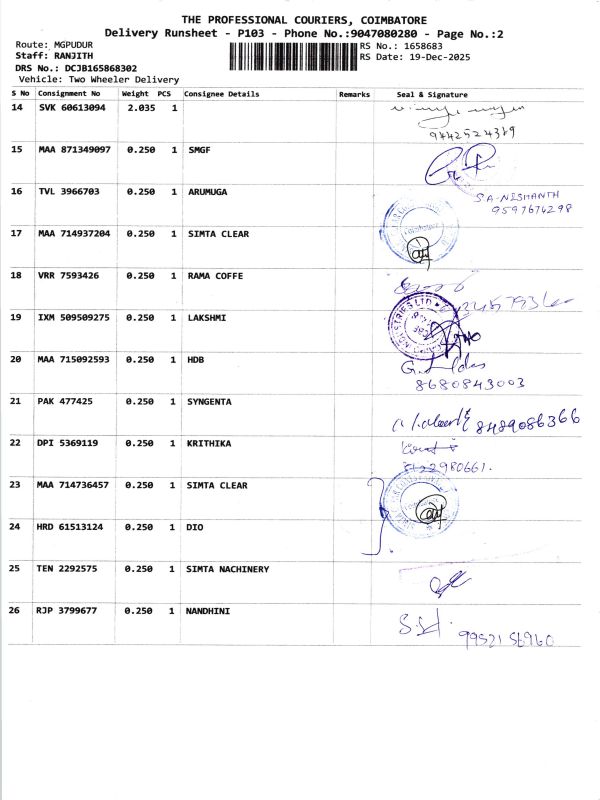 THE PROFESSIONAL COURIERS, COIMBATORE
Delivery Runsheet - P103 - Phone No.:9047080280 - Page No.:2
Route: MGPUDUR
Staff: RANJITH
DRS No.: DCJB165868302
Vehicle: Two Wheeler Delivery
RS No.: 1658683
RS Date: 19-Dec-2025
S No Consignment No Weight PCS Consignee Details Remarks Seal & Signature
14 SVK 60613094 2.035 1
9442524369
15 MAA 871349097 0.250 1 SMGF
16 TVL 3966703 0.250 1 ARUMUGA
S.A-NISHANTH
9597676298
17 MAA 714937204 0.250 1 SIMTA CLEAR
18 VRR 7593426 0.250 1 RAMA COFFE
19 IXM 509509275 0.250 1 LAKSHMI
20 MAA 715092593 0.250 1 HDB
8680843003
21 PAK 477425 0.250 1 SYNGENTA
8489086366
22 DPI 5369119 0.250 1 KRITHIKA
23 MAA 714736457 0.250 1 SIMTA CLEAR
24 HRD 61513124 0.250 1 DIO
25 TEN 2292575 0.250 1 SIMTA NACHINERY
26 RJP 3799677 0.250 1 NANDHINI